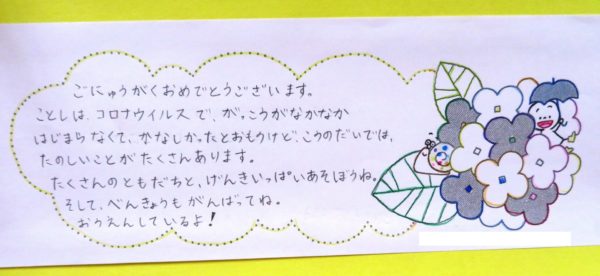 ごにゅうがくおめでとうございます。
ことしは、コロナウイルスで、がっこうがなかなか
はじまらなくて、かなしかったとおもうけど、こうのだいでは、
たのしいことがたくさんあります。
たくさんのともだちと、げんきいっぱいあそぼうね。
そして、べんきょうもがんばってね。
おうえんしているよ!